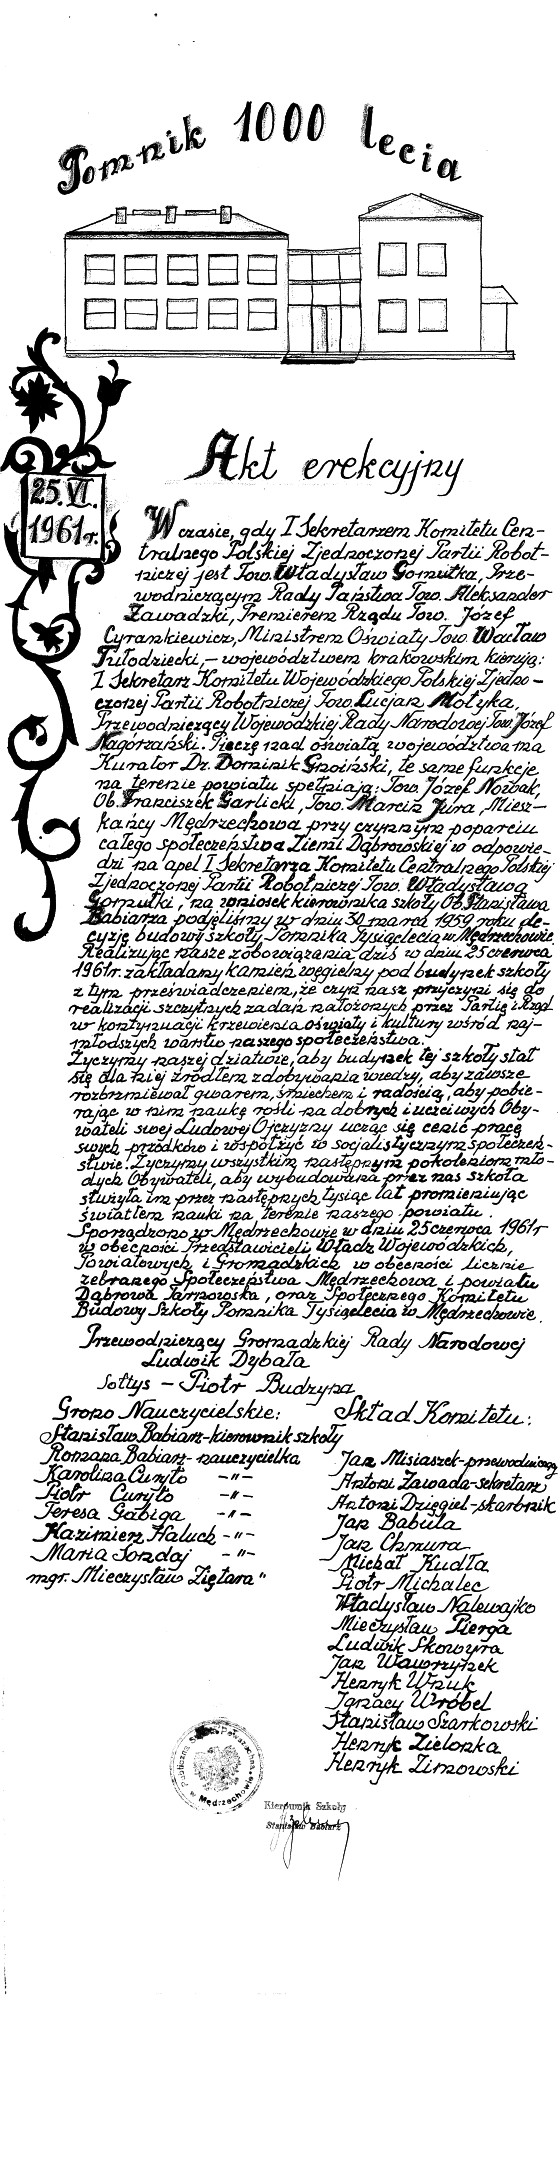 Pomnik 1000 lecia
Akt erekcyjny
25.VI.
1961r.
W czasie, gdy I Sekretarzem Komitetu Cen-
tralnego Polskiej Zjednoczonej Partii Robot-
niczej jest Tow. Władysław Gomułka, Prze-
wodniczącym Rady Państwa Tow. Aleksander
Zawadzki, Premierem Rządu Tow. Józef
Cyrankiewicz, Ministrem Oświaty Tow. Wacław
Tułodziecki, – województwem krakowskim kierują:
I Sekretarz Komitetu Wojewódzkiego Polskiej Zjedno-
czonej Partii Robotniczej Tow. Lucjan Motyka,
Przewodniczący Wojewódzkiej Rady Narodowej Tow. Józef
Nagórzański. Pieczę nad oświatą województwa ma
Kurator Dr. Dominik Gnoiński, te same funkcje
na terenie powiatu spełniają: Tow. Józef Nowak,
Ob. Franciszek Garlicki, Tow. Marcin Jura, Miesz-
kańcy Mędrzechowa przy czynnym poparciu
całego społeczeństwa Ziemi Dąbrowskiej w odpowie-
dzi na apel I Sekretarza Komitetu Centralnego Polskiej
Zjednoczonej Partii Robotniczej Tow. Władysława
Gomułki, na wniosek kierownika szkoły Ob. Stanisława
Babiarza podjęliśmy w dniu 30 marca 1959 roku de-
cyzję budowy szkoły, Pomnika Tysiąclecia w Mędrzechowie.
Realizując nasze zobowiązania dziś w dniu 25 czerwca
1961r. zakładamy kamień węgielny pod budynek szkoły
z tym przeświadczeniem, że czyn nasz przyczyni się do
realizacji szczytnych zadań nałożonych przez Partię i Rząd
w kontynuacji krzewienia oświaty i kultury wśród naj-
młodszych warstw naszego społeczeństwa.
Życzymy naszej dziatwie, aby budynek tej szkoły stał
się dla niej źródłem zdobywania wiedzy, aby zawsze
rozbrzmiewał gwarem, śmiechem i radością, aby pobie-
rając w nim naukę rośli na dobrych i uczciwych Oby-
wateli swej Ludowej Ojczyzny ucząc się cenić pracę
swych przodków i współżyć w socjalistycznym społeczeń-
stwie. Życzymy wszystkim następnym pokoleniom mło-
dych Obywateli, aby wybudowana przez nas szkoła
służyła im przez następnych tysiąc lat promieniując
światłem nauki na terenie naszego powiatu.
Sporządzono w Mędrzechowie w dniu 25 czerwca 1961r
w obecności Przedstawicieli Władz Wojewódzkich,
Powiatowych i Gromadzkich w obecności licznie
zebranego Społeczeństwa Mędrzechowa i powiatu
Dąbrowa Tarnowska, oraz Społecznego Komitetu
Budowy Szkoły Pomnika Tysiąclecia w Mędrzechowie.
Przewodniczący Gromadzkiej Rady Narodowej
Ludwik Dybała
Sołtys – Piotr Budzyna
Grono Nauczycielskie:
Stanisław Babiarz-kierownik szkoły
Romana Babiarz-nauczycielka
Karolina Curyło -"-
Piotr Curyło -"-
Teresa Gabiga -"-
Kazimierz Haluch -"-
Maria Sondaj -"-
mgr. Mieczysław Ziętara "
Skład Komitetu:
Jan Misiaszek-przewodniczący
Antoni Zawada-sekretarz
Antoni Dzięgiel-skarbnik
Jan Babula
Jan Chmura
Michał Kudła
Piotr Michalec
Władysław Nalewajko
Mieczysław Pierga
Ludwik Skowyra
Jan Wawrzynek
Henryk Wnuk
Ignacy Wróbel
Stanisław Szarkowski
Henryk Zielonka
Henryk Zimowski
Publiczna Szkoła Powszechna
w Mędrzechowie
Kierownik Szkoły
Stanisław Babiarz